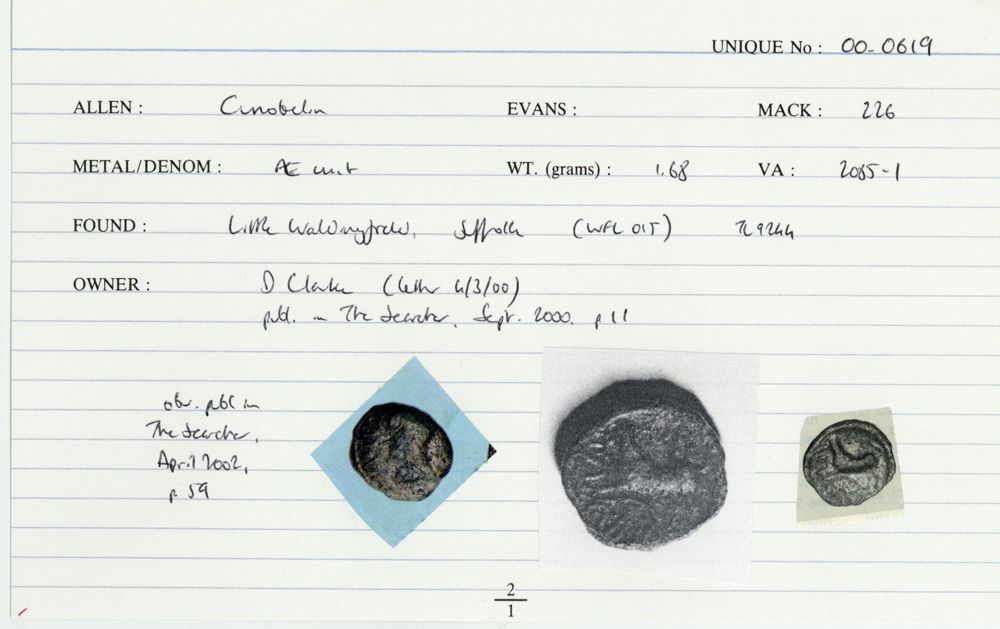 UNIQUE No : 00-0619
ALLEN : Cunobelin EVANS : MACK : 226
METAL/DENOM : Æ unit WT. (grams) : 1.68 VA : 2085-1
FOUND : Little Waldingfield, Suffolk (WFL 015) TL9244
OWNER : D Clarke (letter 4/3/00)
publ. in The Searcher, Sept. 2000, p 11
obv. publ in
The Searcher,
April 2002,
p 59
2
1